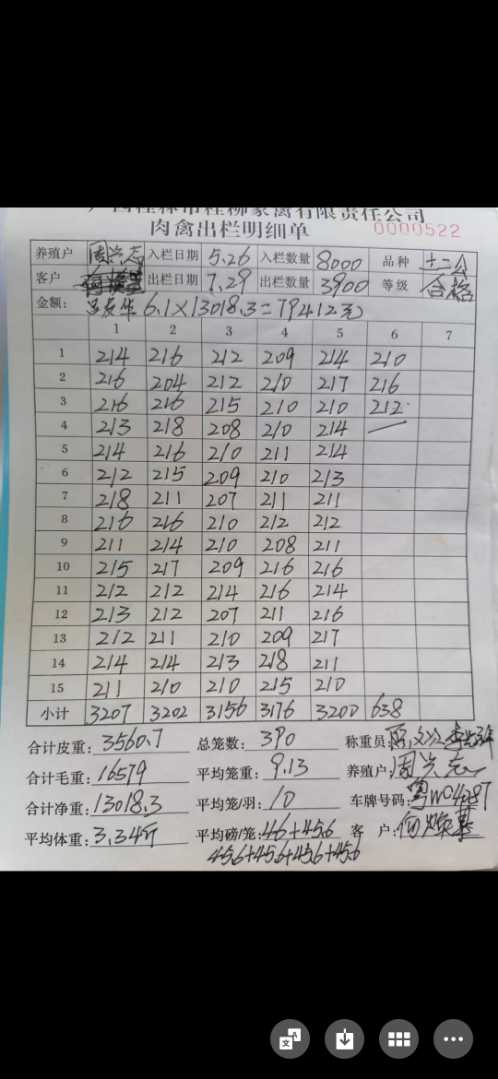 广西桂林市桂柳家禽有限责任公司
肉禽出栏明细单 0000522
养殖户 周兴志 入栏日期 5.26 入栏数量 8000 品种 土二公
客户 出栏日期 7.29 出栏数量 3900 等级 合格
金额: 6.1×13018.3=79412元
1 2 3 4 5 6 7
1 214 216 212 209 214 210
2 216 204 212 210 217 216
3 216 216 215 210 210 212
4 213 218 208 210 214
5 214 216 210 211 214
6 212 215 209 210 213
7 218 211 207 211 211
8 216 216 210 212 212
9 211 214 210 208 211
10 215 217 209 216 216
11 212 212 214 216 214
12 213 212 207 211 216
13 212 211 210 209 217
14 214 214 213 218 211
15 211 210 210 215 210
小计 3207 3202 3156 3176 3200 638
合计皮重: 3560.7 总笼数: 390 称重员:
合计毛重: 16579 平均笼重: 9.13 养殖户: 周兴志
合计净重: 13018.3 平均笼/羽: 10 车牌号码: 粤W04287
平均体重: 3.34斤 平均磅/笼: 46+45.6 客 户:
45.6+45.6+45.6+45.6